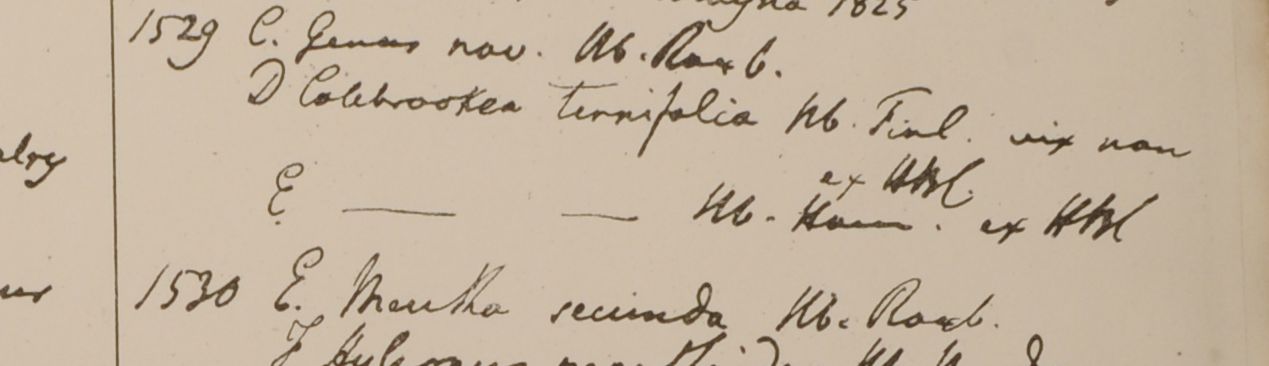 1825
1529 C. Genus nov. Hb. Roxb.
D Colebrookea ternifolia Hb. Finl. vix non
ex HBC.
E — — Hb. Ham. ex HBC
1530 E. Mentha secunda Hb. Roxb.
F